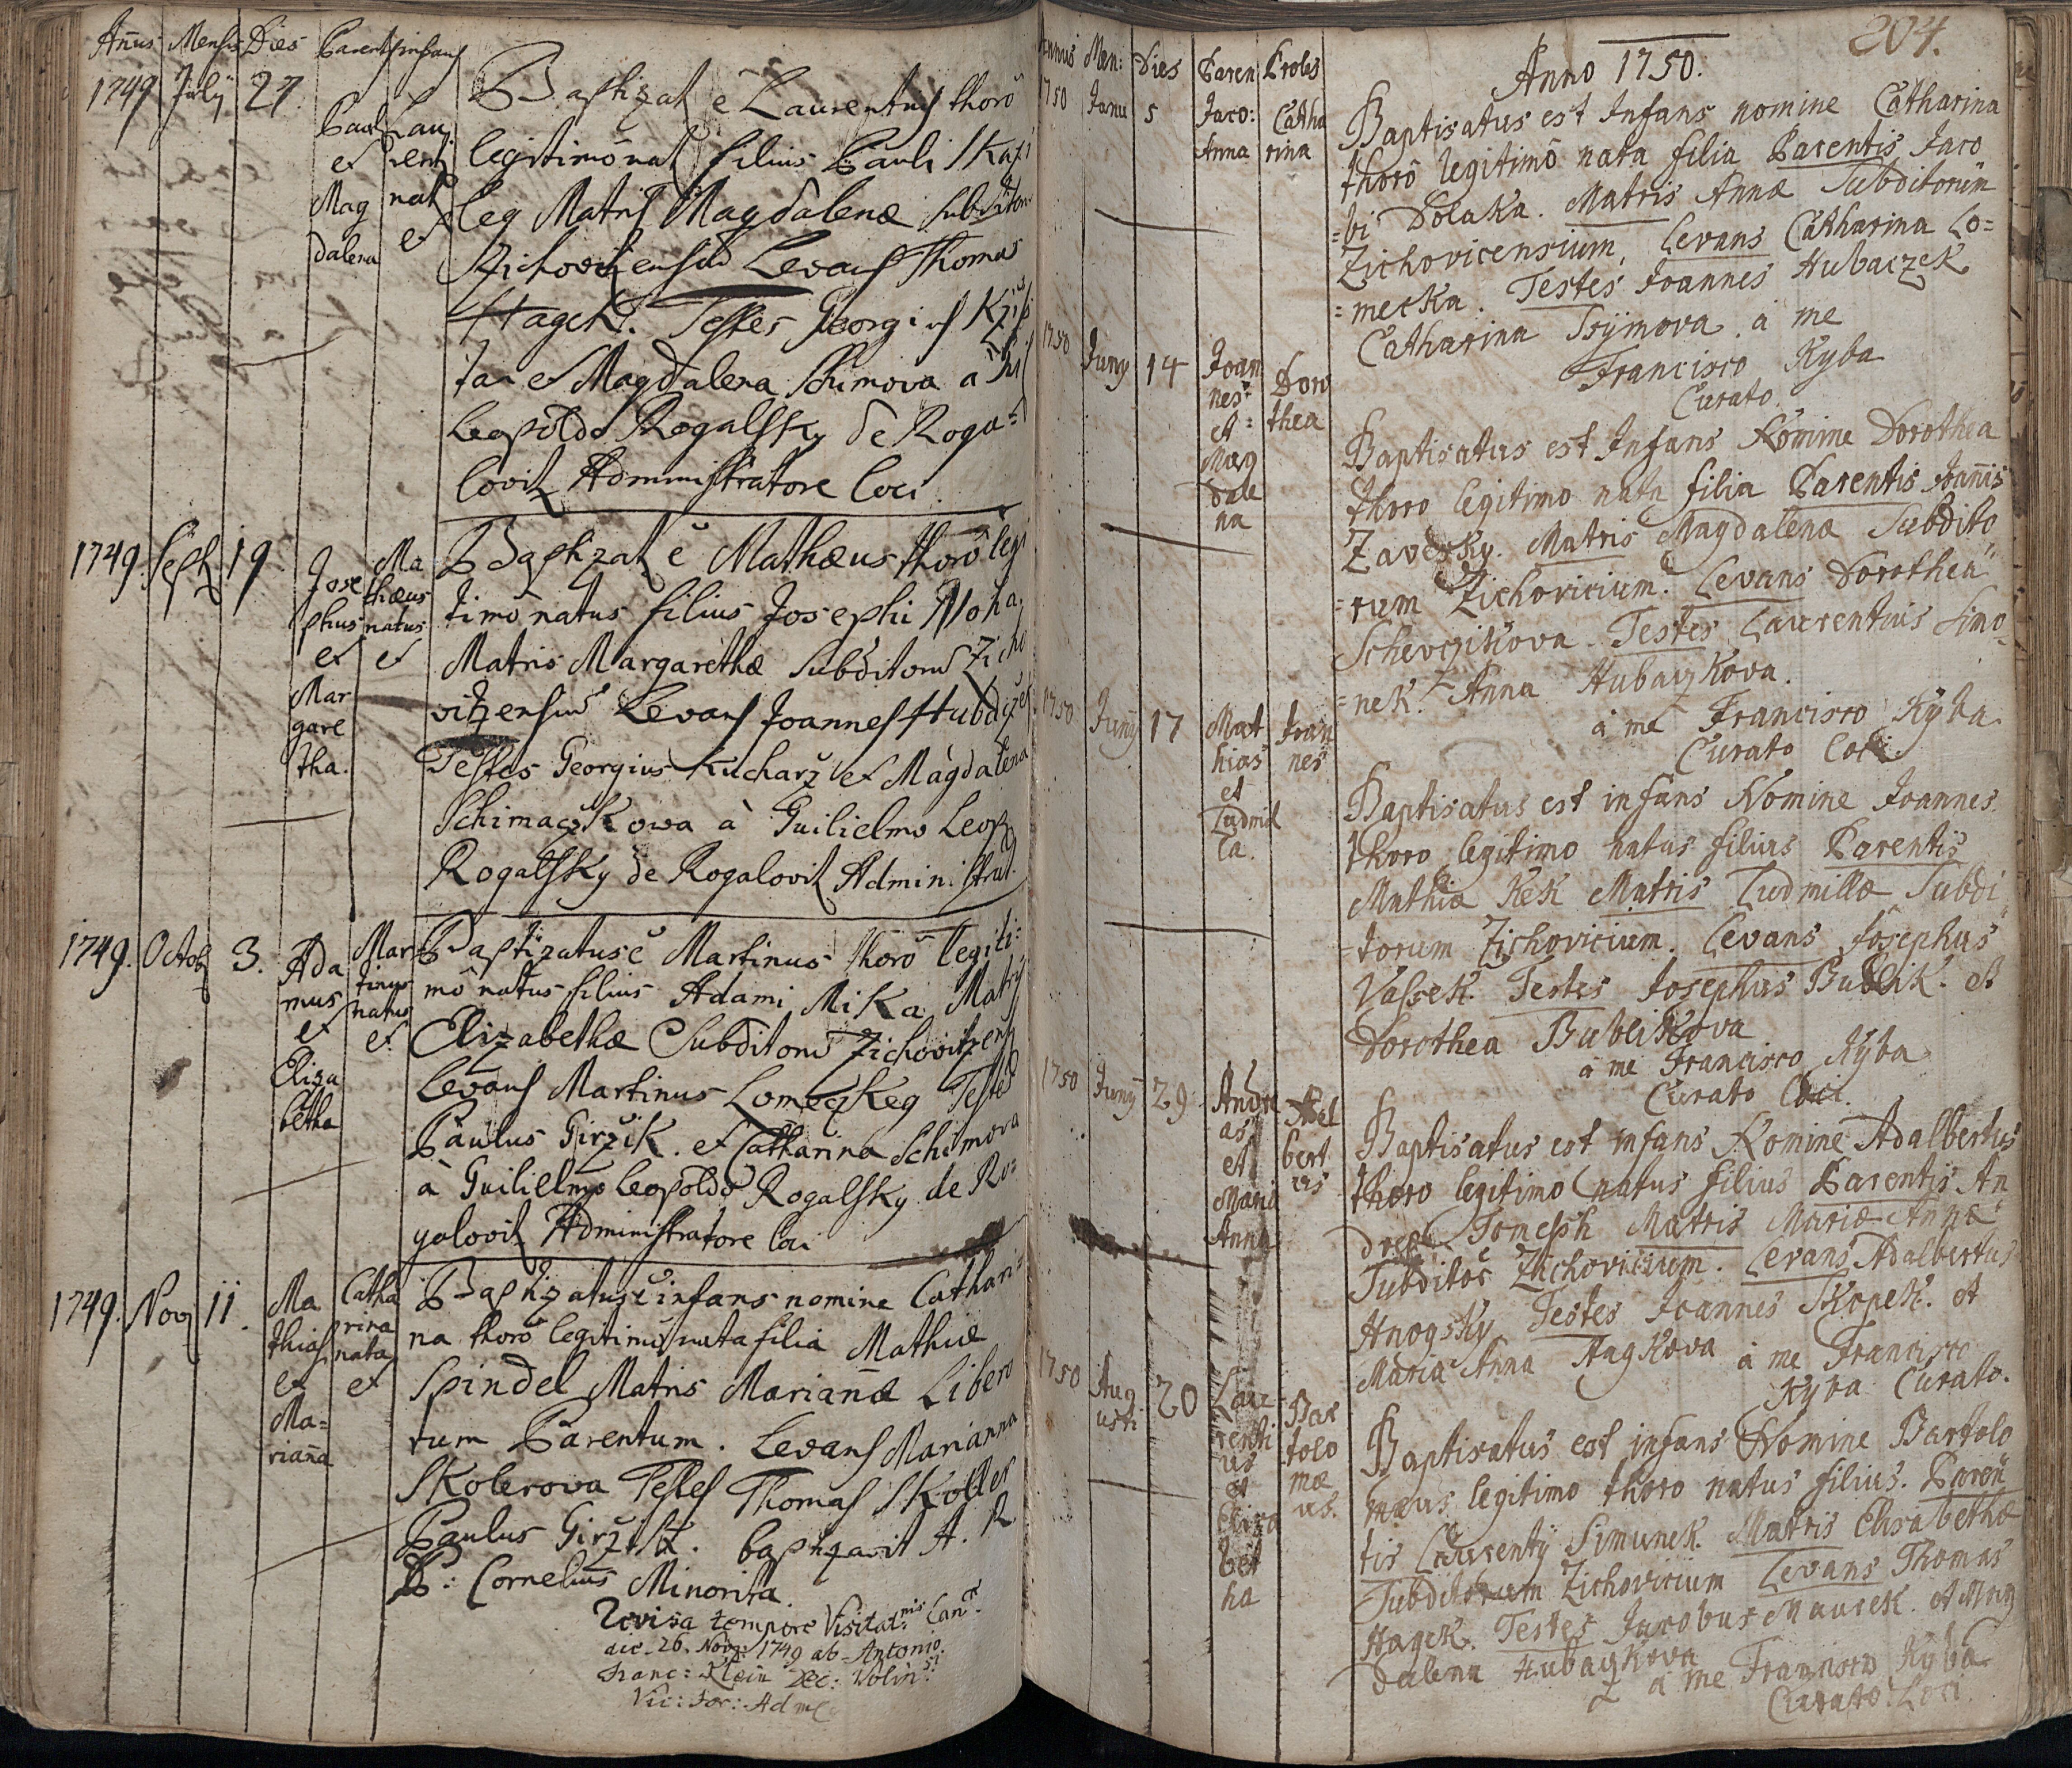 Añus Mensis Dies Parent infans
1749 July 27.
Paul et Magdalena
Laurenti nat et
Baptizat ē Laurentius thorô
legitimô nat filius Pauli
leg Matris Magdalenæ subditorū
Levans Thomas
Hagek. Testes Georgius
et Magdalena Schimova à
Leopoldo Rogalsky de Roga=
lovitz Administratore loci.
1749. Sept 19.
Jose
phus
et
Mar
gare
tha.
Ma
thæus
natus
et
Baptizat ē Mathæus thorô legi
timô natus filius Josephi
Matris Margarethæ Subditorū Zicho
vitzensiū Levans Joannes Hubaczek
Testes Georgius Kucharz et Magdalena
Schimaczkowa à Guilielmo Leop
Rogalsky de Rogalovitz Administrat.
1749. Octob 3.
Ada
mus
et
Eliza
betha
Mar
tinus
natus
et
Baptizatus ē Martinus thorô legiti=
mô natus filius Adami Mika Matris
Elizabethæ Subditorū Zichovitzens
Levans Martinus Lomeczkeg Testes
Paulus Girzik. et Catharina Schimova
à Guilielmo Leopoldo Rogalsky de Ro=
galovitz Administratore loci
1749. Nov 11.
Ma
thias
et
Ma=
riaña
Catha
rina
nata
et
Baptizatus ē infans nomine Cathari=
na thorô legitimô nata filia Mathiæ
Spindel Matris Mariañæ Libero
rum Parentum. Levans Marianna
Skolerova Testes Thomas Skoller
Paulus Girzik. baptizavit A. R.
P: Cornelius Minorita.
Revisa tempore Visitat:nis Can:
die 26. Nov: 1749 ab Antonio
Franc: Klein Dec: Volin:
Vic: For: Adme
204.
Annus Men: Dies Paren Proles
Anno 1750.
1750 Janu 5
Jaco:
Anna
Catha
rina
Baptisatus est Infans nomine Catharina
thorô legitimô nata filia Parentis Jaco
=bi Dolaka. Matris Annæ Subditorūm
Zichovicensium, Levans Catharina Lo=
=mecka. Testes Joannes Hubaczek
Catharina Ssymova à me
Francisco Kyba
Curato.
1750 Juny 14
Joan
nes
et
Mag
dale
na
Doro
thea
Baptisatus est Infans Nomine Dorothea
thoro legitimo nata filia Parentis Joañis
Zaversky. Matris Magdalenæ Subdito
=rum Zichovicium. Levans Dorothea
Schevczikova. Testes Laurentius Simo=
=nek. Anna Hubaczkova.
à me Francisco Kyba
Curato loci.
1750 Juny 17
Mat
hias
et
Ludmil
la.
Joan
nes
Baptisatus est infans Nomine Joannes
thoro legitimo natus filius Parentis
Mathiæ Kek Matris Ludmillæ Subdi
=torum Zichovicium. Levans Josephus
Vassek. Testes Josephus Bublik. et
Dorothea Bublikova
à me Francisco Kyba
Curato loci.
1750 Juny 29
Andre
as
et
Maria
Anna
Adel
bert
us
Baptisatus est infans Nomine Adalbertus
thoro legitimo natus filius Parentis An
dreæ Tomesch Matris Mariæ Annæ
Zichovicium. Levans Adalbertus
Hnogsky Testes Joannes Skopek. et
Maria Anna Hagkova à me Francisco
Kyba Curato.
1750 Aug
usti 20
Lau
renti
us
et
Elisa
bet
ha
Bar
tolo
mæ
us.
Baptisatus est infans Nomine Bartolo
mæus legitimo thoro natus filius. Paren
tis Laurenty Simunek. Matris Elisabethæ
Subditorum Zichovicium Levans Thomas
Hagek. Testes Jacobus Maurek. et Mag
dalena Hubaczkova
à me Francisco Kyba
Curato Loci